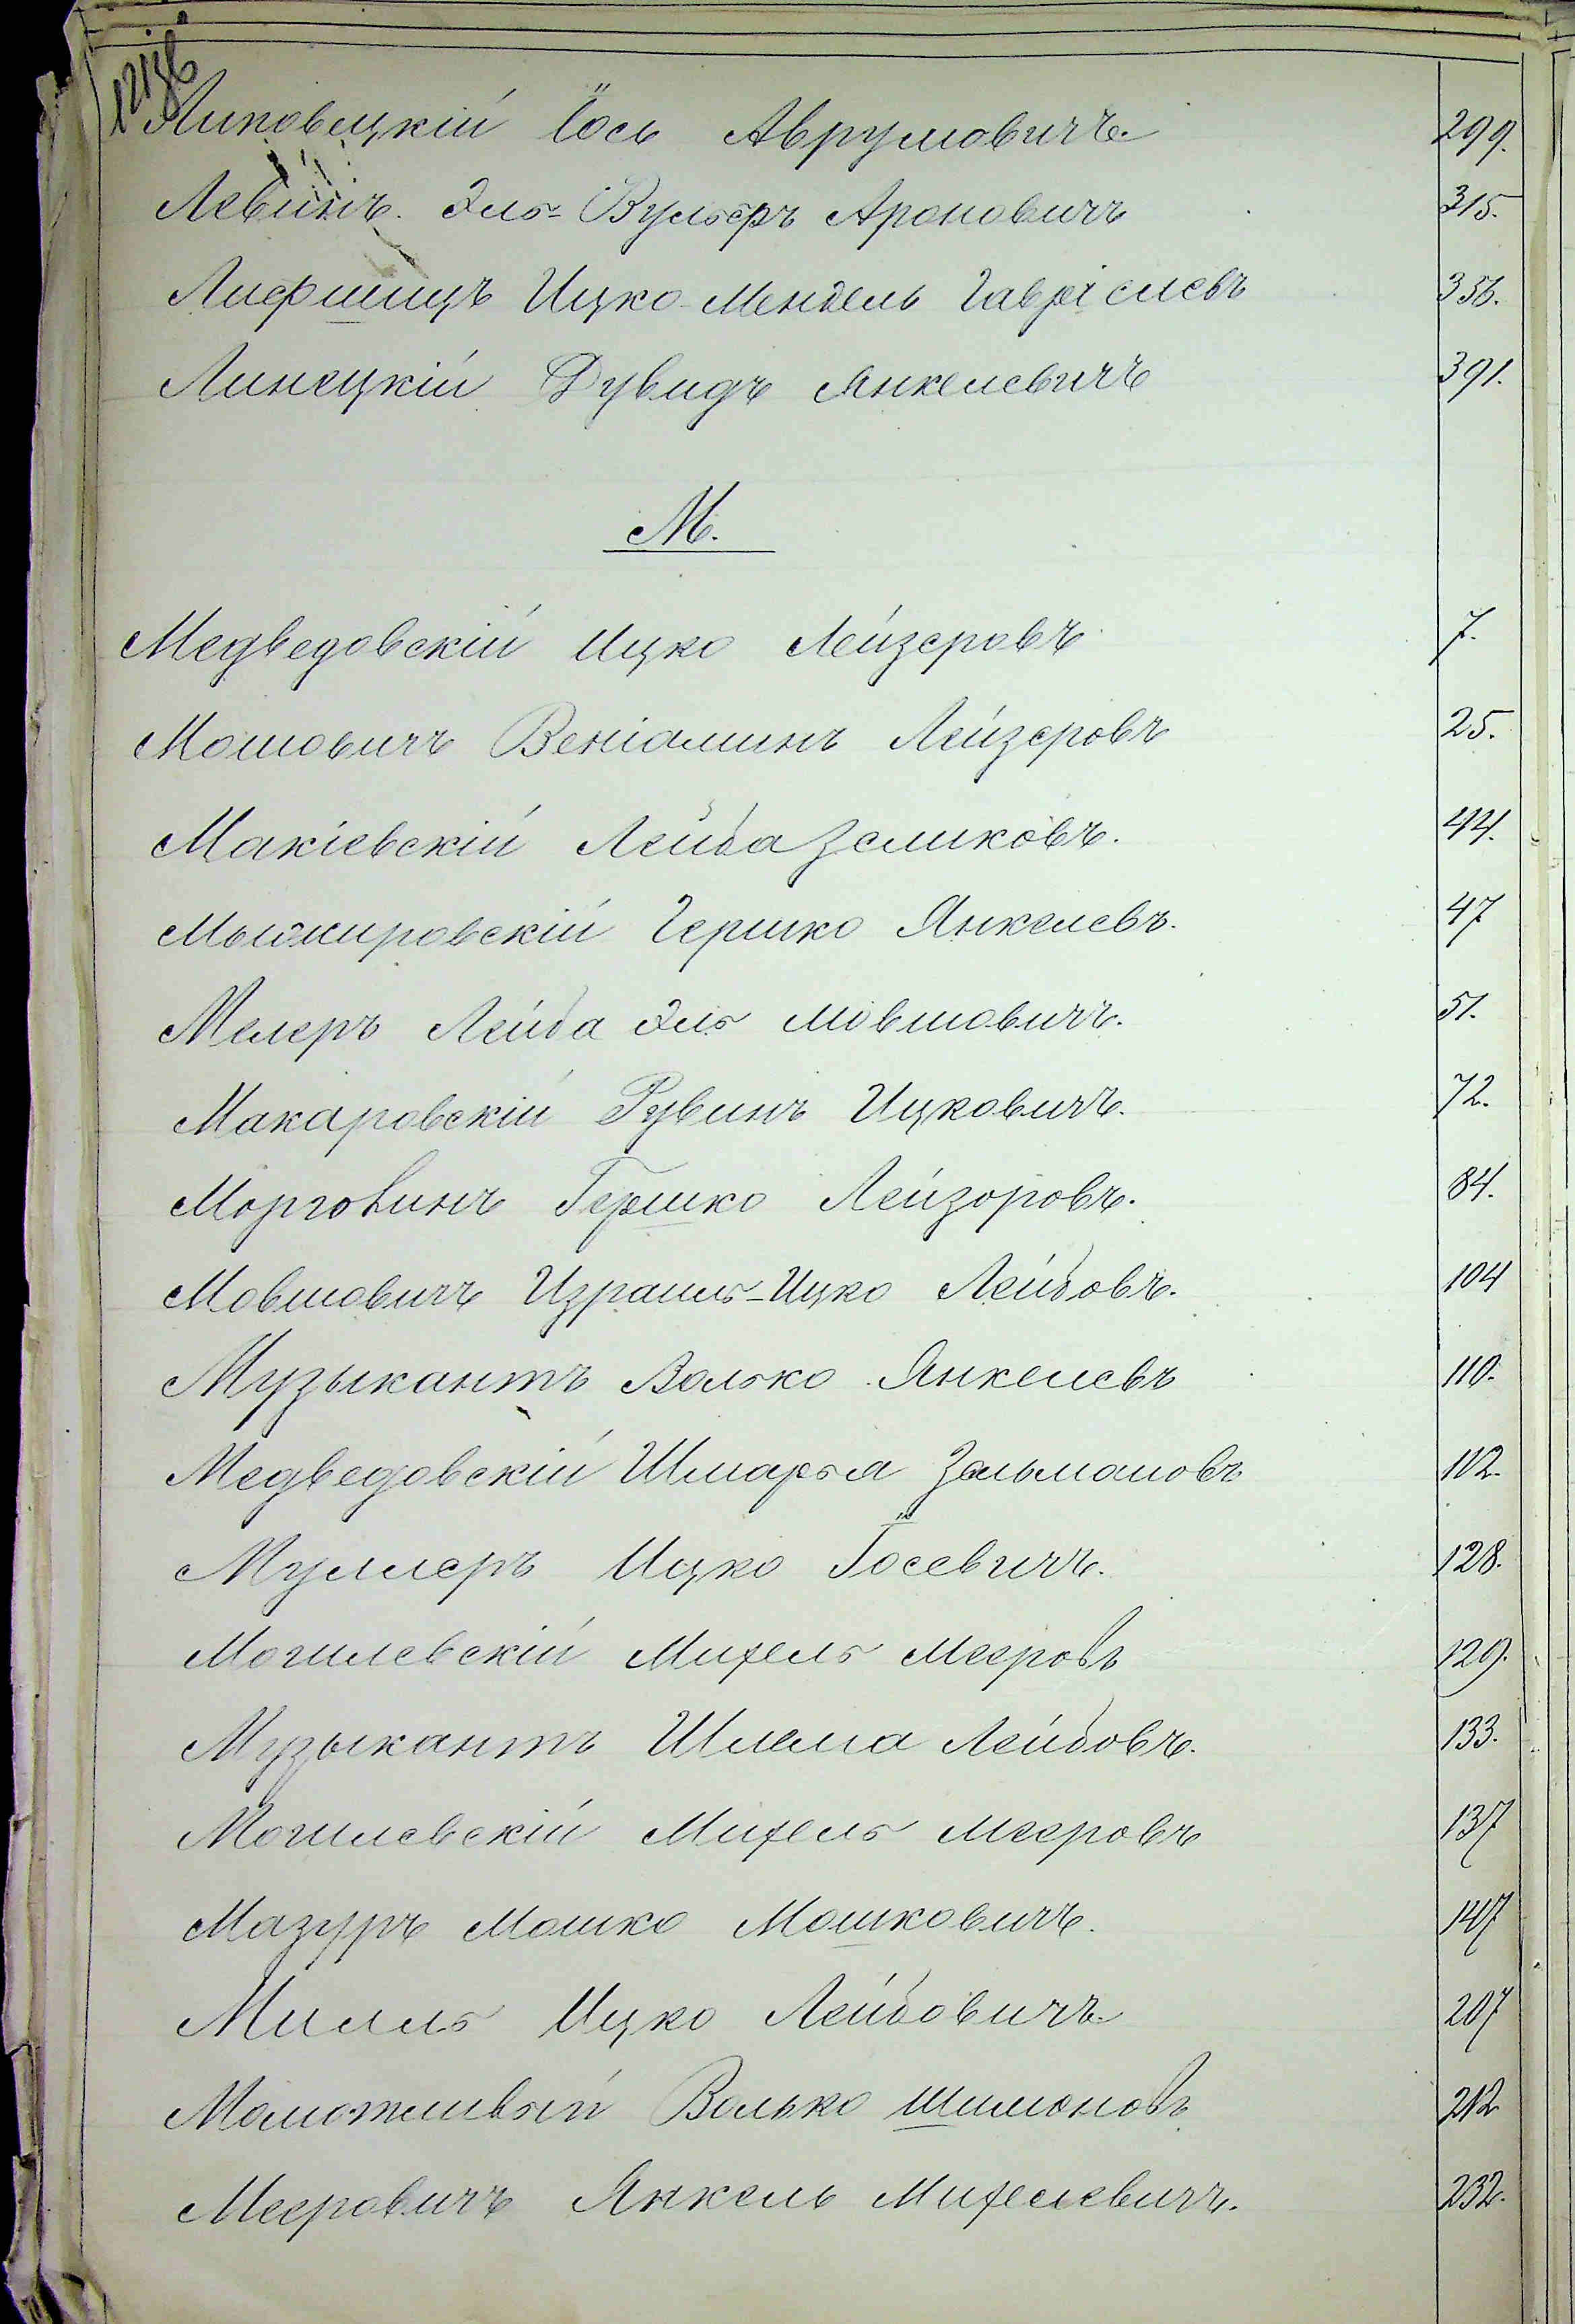 Липовецкій Іось Аврумовичъ 299.
Левинъ Эль-Вульфъ Ароновичъ 315.
Лифшицъ Ицко-Мендель Гавріелевъ 336.
Линецкій Дувидъ Янкелевичъ 391.
М.
Медведовскій Ицко Лейзеровъ 7.
Мошовичъ Веніаминъ Лейзеровъ 25.
Макіевскій Лейба Зеликовъ. 44.
Мышкировскій Гершко Янкелевъ. 47
Мелеръ Лейба Эль Мовшовичъ. 51.
Макаровскій Рувинъ Ицковичъ. 72.
Морговинъ Гершко Лейзоровъ. 84.
Мовшовичъ Израиль-Ицко Лейбовъ. 104
Музыкантъ Волько Янкелевъ 110.
Медведовскій Шмарья Зальмановъ 112.
Муллеръ Ицко Іосевичъ. 128.
Могилевскій Михель Мееровъ 129.
Музыкантъ Шлема Лейбовъ. 133.
Могилевскій Михель Мееровъ 137
Мазуръ Мошко Мошковичъ. 147
Милль Ицко Лейбовичъ. 207
Волько Шимоновъ 212
Мееровичъ Янкель Михелевичъ. 232.